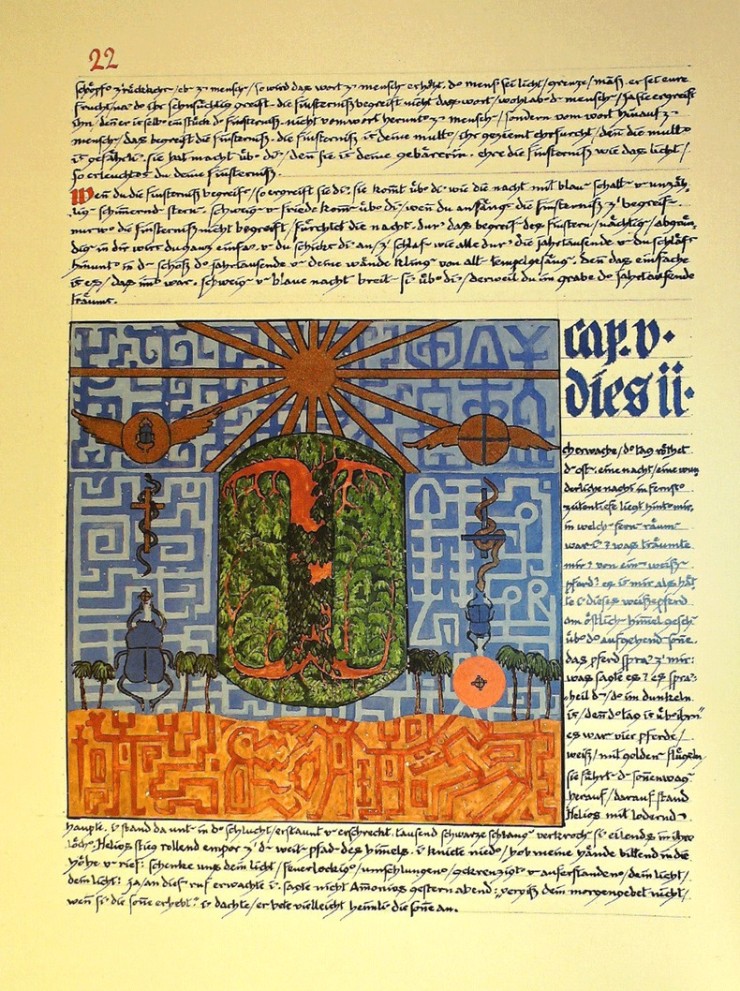 22
mensch / so wird das wort z mensch erhöht. sei licht / grenze / er sei eure
ihr sehnsüchtig greift. die finsterniß begreift nicht das wort / wohl mensch / ja sie ergreift
ihn / ein stück finsterniß. nicht vom wort z mensch / sondern vom wort hinauf z
mensch / das begreift die finsterniß. die finsterniß deine ihr geziemt ehrfurcht / den die
gefährli. sie hat macht üb / den sie deine gebärerin. ehre die finsterniß wie das licht /
so erleuchtest du deine finsterniß.
Wen du die finsterniß begreifst / so ergreift sie di. sie komt üb di wie die nacht mit blau schatt v unzäh,
lig schimernd stern. schweig v friede kom üb di / wen du anfängst die finsterniß z begreif.
nur wo die finsterniß nicht begreift / fürchtet die nacht. dur das begreif des finstern / nächtig / abgrün,
dig in dir wirst du ganz einfa. v du schickst di an / z schlaf wie alle dur die jahrtausende v du schläfst
hinunt in schoß jahrtausende v deine wände kling von alt tempelgesäng. den das einfache
es / das war. schweig v blaue nacht breit si üb di / derweil du im grabe jahrtausende
träumt.
cap. v.
dies ii.
ch erwache / tag röthet
ost. eine nacht / eine wun
derliche nacht in fernst
zeitentiefe liegt hint mir.
in welch fern räum
war i? was träumte
mir? von ein weiß
pferd? es mir als hät
te dieses weiße pferd
am östlich himel geseh
üb aufgehend sone.
das pferd spra z mir:
was sagte es? es spra:
heil im dunkeln
/ den tag üb ihm"
es war vier pferde /
weiß / mit golden flügeln
sie führt sonenwag
herauf / darauf stand
Helios mit lodernd
haupte. i stand da unt in schlucht / erstaunt v erschreckt. tausend schwarze schlang verkroch si eilends in ihre
löch. Helios stieg rollend empor z weit pfad des himels. i kniete nied / hob meine hände bittend in die
höhe v rief: schenke uns dein licht / feuerlockig / umschlungen / gekreuzigt v auferstanden / dein licht /
dein licht! ja / an dies ruf erwachte i. sagte nicht Amonios gestern abend: „vergiß dein morgengebet nicht /
wen si die sone erhebt." i dachte / er bete vielleicht heimli die sone an.